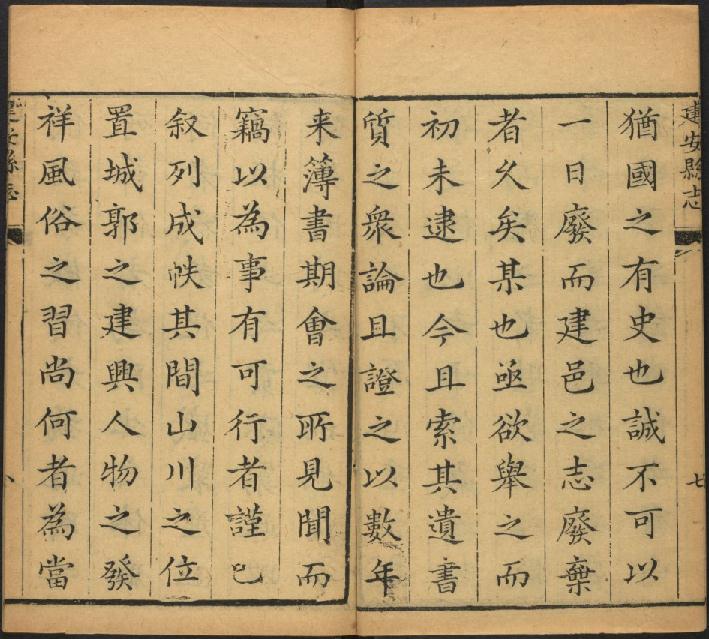 建安縣志
七
猶國之有史也誠不可以
一日廢而建邑之志廢棄
者久矣某也亟欲舉之而
初未逮也今且索其遺書
質之衆論且證之以數年
来簿書期會之所見聞而
竊以為事有可行者謹已
叙列成帙其間山川之位
置城郭之建興人物之發
祥風俗之習尚何者為當
建安縣志
八